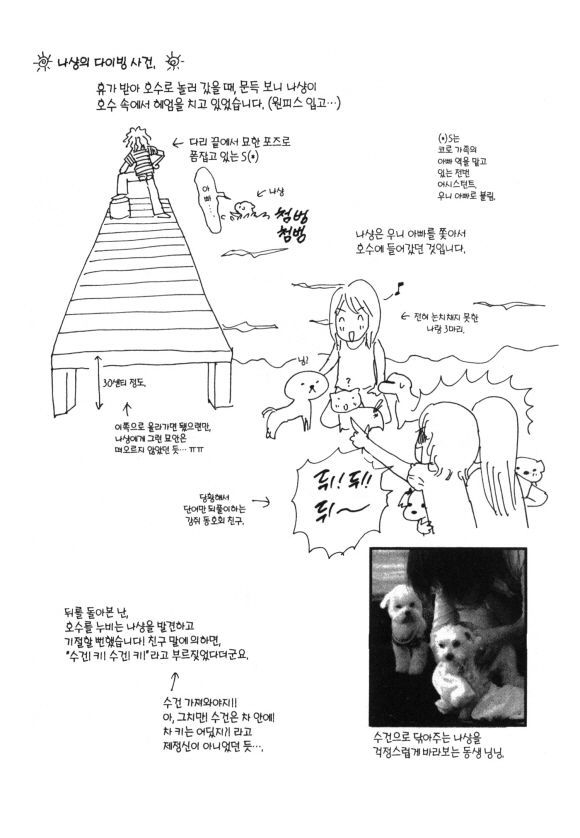 나상의 다이빙 사건.
휴가 받아 호수로 놀러 갔을 때, 문득 보니 나상이
호수 속에서 헤엄을 치고 있었습니다. (원피스 입고…)
← 다리 끝에서 묘한 포즈로
폼잡고 있는 S(*)
(*)S는
코로 가족의
아빠 역을 맡고
있는 전번
어시스턴트.
우니 아빠로 불림.
아빠
← 나상
첨벙
첨벙
나상은 우니 아빠를 쫓아서
호수에 들어갔던 것입니다.
♪
← 전혀 눈치채지 못한
나랑 3마리.
닝?
?
30센티 정도.
이쪽으로 올라가면 됐으련만,
나상에게 그런 묘안은
떠오르지 않았던 듯… ㅠㅠ
뒤! 뒤!!
뒤~
당황해서
단어만 되풀이하는
강쥐 동호회 친구.
뒤를 돌아본 난,
호수를 누비는 나상을 발견하고
기절할 뻔했습니다! 친구 말에 의하면,
"수건! 키! 수건! 키!"라고 부르짖었다더군요.
수건 가져와야지!!
아, 그치만! 수건은 차 안에!
차 키는 어딨지?! 라고
제정신이 아니었던 듯….
수건으로 닦아주는 나상을
걱정스럽게 바라보는 동생 닝닝.